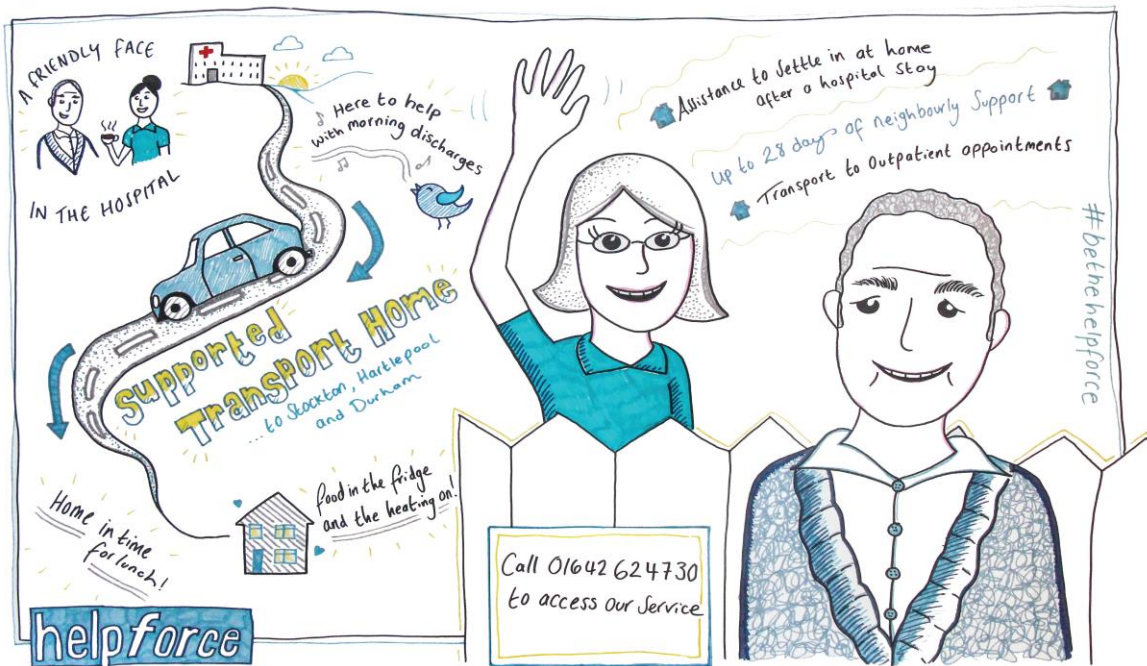 A FRIENDLY FACE
IN THE HOSPITAL
Here to help
with morning discharges
Supported
Transport Home
...to Stockton, Hartlepool
and Durham
Home in time
for lunch!
food in the fridge
and the heating on!
helpforce
Assistance to settle in at home
after a hospital stay
up to 28 days of neighbourly support
Transport to Outpatient appointments
#bethehelpforce
Call 01642 624730
to access our Service